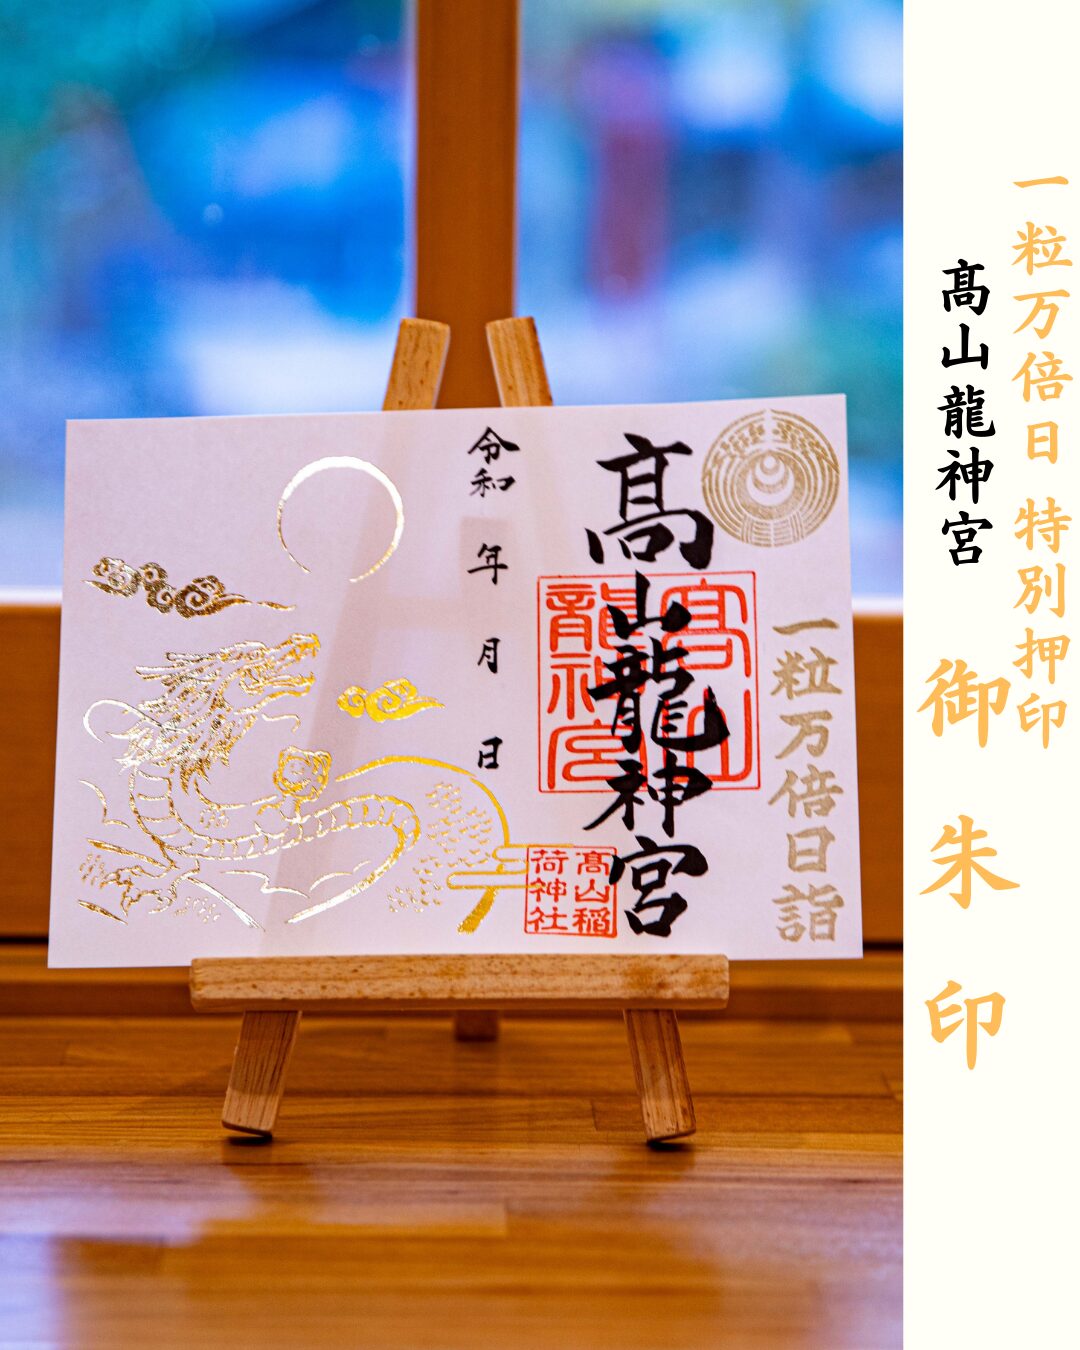 一粒万倍日 特別押印
髙山龍神宮
御朱印
一粒万倍日詣
髙山龍神宮
髙山龍神宮
髙山稲荷神社
令和 年 月 日